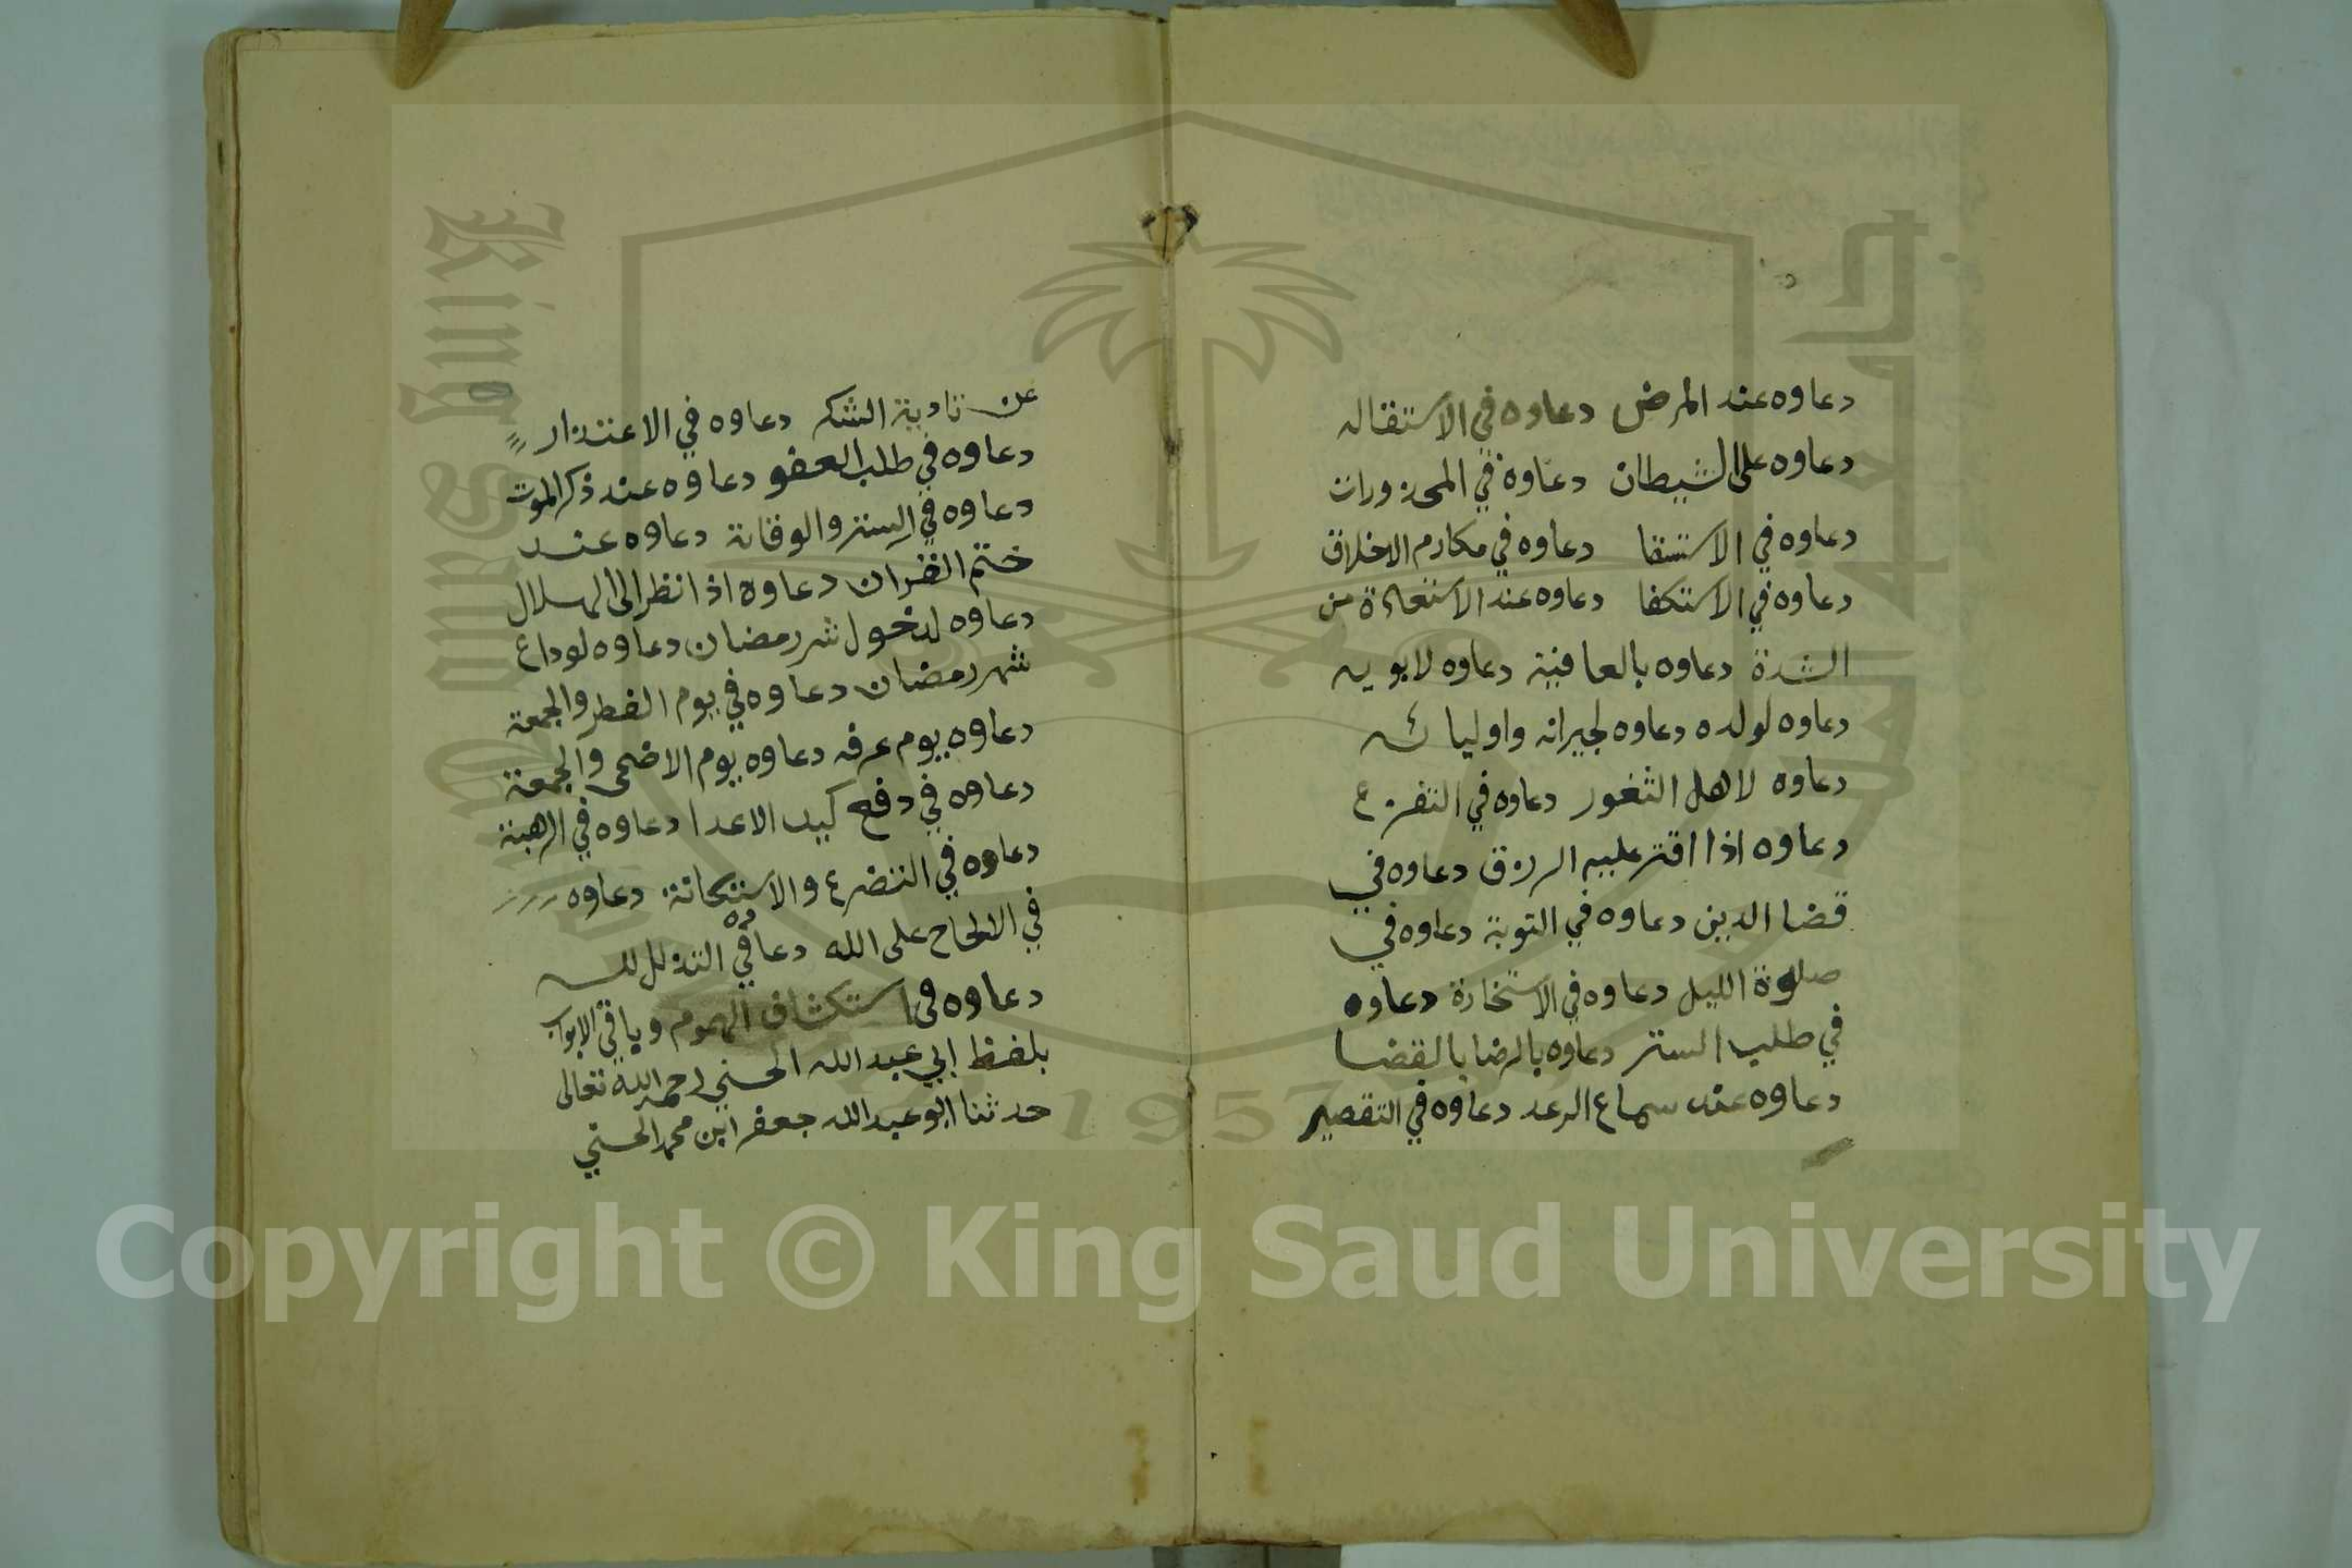 دعاوه عند المرض دعاوه في الاستقاله
دعاوه على الشيطان دعاوه في المحذورات
دعاوه في الاستسقا دعاوه في مكارم الاخلاق
دعاوه في الاستكفا دعاوه عند الاستعاذة من
الشدة دعاوه بالعافية دعاوه لابويه
دعاوه لولده دعاوه لجيرانه واوليائه
دعاوه لاهل الثغور دعاوه في التفزع
دعاوه اذا اقتر عليه الرزق دعاوه في
قضا الدين دعاوه في التوبة دعاوه في
صلوة الليل دعاوه في الاستخارة دعاوه
في طلب الستر دعاوه بالرضا بالقضا
دعاوه عند سماع الرعد دعاوه في التقصير
عن تادية الشكر دعاوه في الاعتذار
دعاوه في طلب العفو دعاوه عند ذكر الموت
دعاوه في الستر والوقاية دعاوه عند
ختم القران دعاوه اذا نظر الى الهلال
دعاوه لدخول شهر رمضان دعاوه لوداع
شهر رمضان دعاوه في يوم الفطر والجمعة
دعاوه يوم عرفه دعاوه يوم الاضحى والجمعة
دعاوه في دفع كيد الاعدا دعاوه في الرهبة
دعاوه في التضرع والاستكانة دعاوه
في الالحاح على الله دعاوه في التذلل لله
دعاوه في استكشاف الهموم وباقي الابواب
بلفظ ابي عبد الله الحسني رحمه الله تعالى
حدثنا ابو عبد الله جعفر ابن محمد الحسني
King Saud University
1957
Copyright © King Saud University